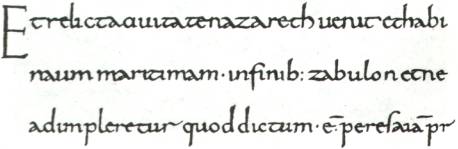 Et relicta ciuitate nazareth uenit et habi
naum maritimam · in finib: zabulon et ne
adimpleretur quod dictum · ē per esaiā pr